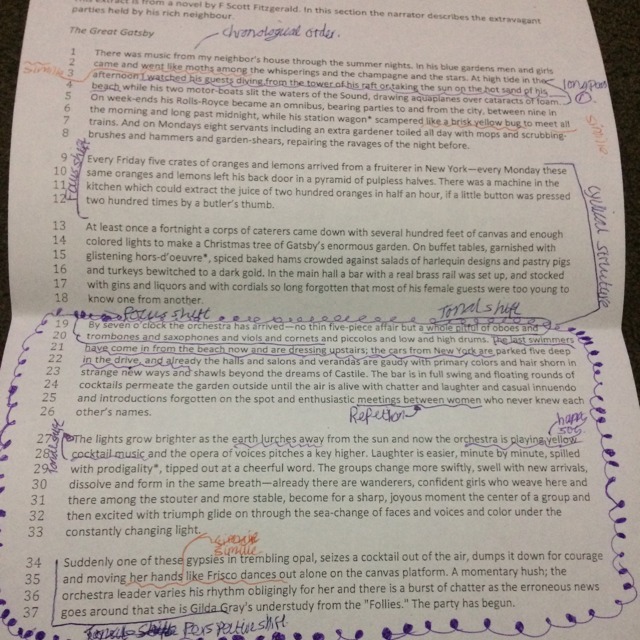 This extract is from a novel by F Scott Fitzgerald. In this section the narrator describes the extravagant
parties held by his rich neighbour.
The Great Gatsby
chronological order.
1 There was music from my neighbor's house through the summer nights. In his blue gardens men and girls
2 came and went like moths among the whisperings and the champagne and the stars. At high tide in the
simile
3 afternoon I watched his guests diving from the tower of his raft or taking the sun on the hot sand of his
4 beach while his two motor-boats slit the waters of the Sound, drawing aquaplanes over cataracts of foam.
5 On week-ends his Rolls-Royce became an omnibus, bearing parties to and from the city, between nine in
6 the morning and long past midnight, while his station wagon* scampered like a brisk yellow bug to meet all
simile
7 trains. And on Mondays eight servants including an extra gardener toiled all day with mops and scrubbing-
8 brushes and hammers and garden-shears, repairing the ravages of the night before.
Focus shift
9 Every Friday five crates of oranges and lemons arrived from a fruiterer in New York—every Monday these
10 same oranges and lemons left his back door in a pyramid of pulpless halves. There was a machine in the
11 kitchen which could extract the juice of two hundred oranges in half an hour, if a little button was pressed
12 two hundred times by a butler's thumb.
cyclical structure
13 At least once a fortnight a corps of caterers came down with several hundred feet of canvas and enough
14 colored lights to make a Christmas tree of Gatsby's enormous garden. On buffet tables, garnished with
15 glistening hors-d'oeuvre*, spiced baked hams crowded against salads of harlequin designs and pastry pigs
16 and turkeys bewitched to a dark gold. In the main hall a bar with a real brass rail was set up, and stocked
17 with gins and liquors and with cordials so long forgotten that most of his female guests were too young to
18 know one from another.
Focus shift
Tonal shift
19 By seven o'clock the orchestra has arrived—no thin five-piece affair but a whole pitful of oboes and
20 trombones and saxophones and viols and cornets and piccolos and low and high drums. The last swimmers
21 have come in from the beach now and are dressing upstairs; the cars from New York are parked five deep
22 in the drive, and already the halls and salons and verandas are gaudy with primary colors and hair shorn in
23 strange new ways and shawls beyond the dreams of Castile. The bar is in full swing and floating rounds of
24 cocktails permeate the garden outside until the air is alive with chatter and laughter and casual innuendo
25 and introductions forgotten on the spot and enthusiastic meetings between women who never knew each
26 other's names.
Repetition
27 The lights grow brighter as the earth lurches away from the sun and now the orchestra is playing yellow
28 cocktail music and the opera of voices pitches a key higher. Laughter is easier, minute by minute, spilled
29 with prodigality*, tipped out at a cheerful word. The groups change more swiftly, swell with new arrivals,
30 dissolve and form in the same breath—already there are wanderers, confident girls who weave here and
31 there among the stouter and more stable, become for a sharp, joyous moment the center of a group and
32 then excited with triumph glide on through the sea-change of faces and voices and color under the
33 constantly changing light.
simile
34 Suddenly one of these gypsies in trembling opal, seizes a cocktail out of the air, dumps it down for courage
35 and moving her hands like Frisco dances out alone on the canvas platform. A momentary hush; the
36 orchestra leader varies his rhythm obligingly for her and there is a burst of chatter as the erroneous news
37 goes around that she is Gilda Gray's understudy from the "Follies." The party has begun.
Perspective shift